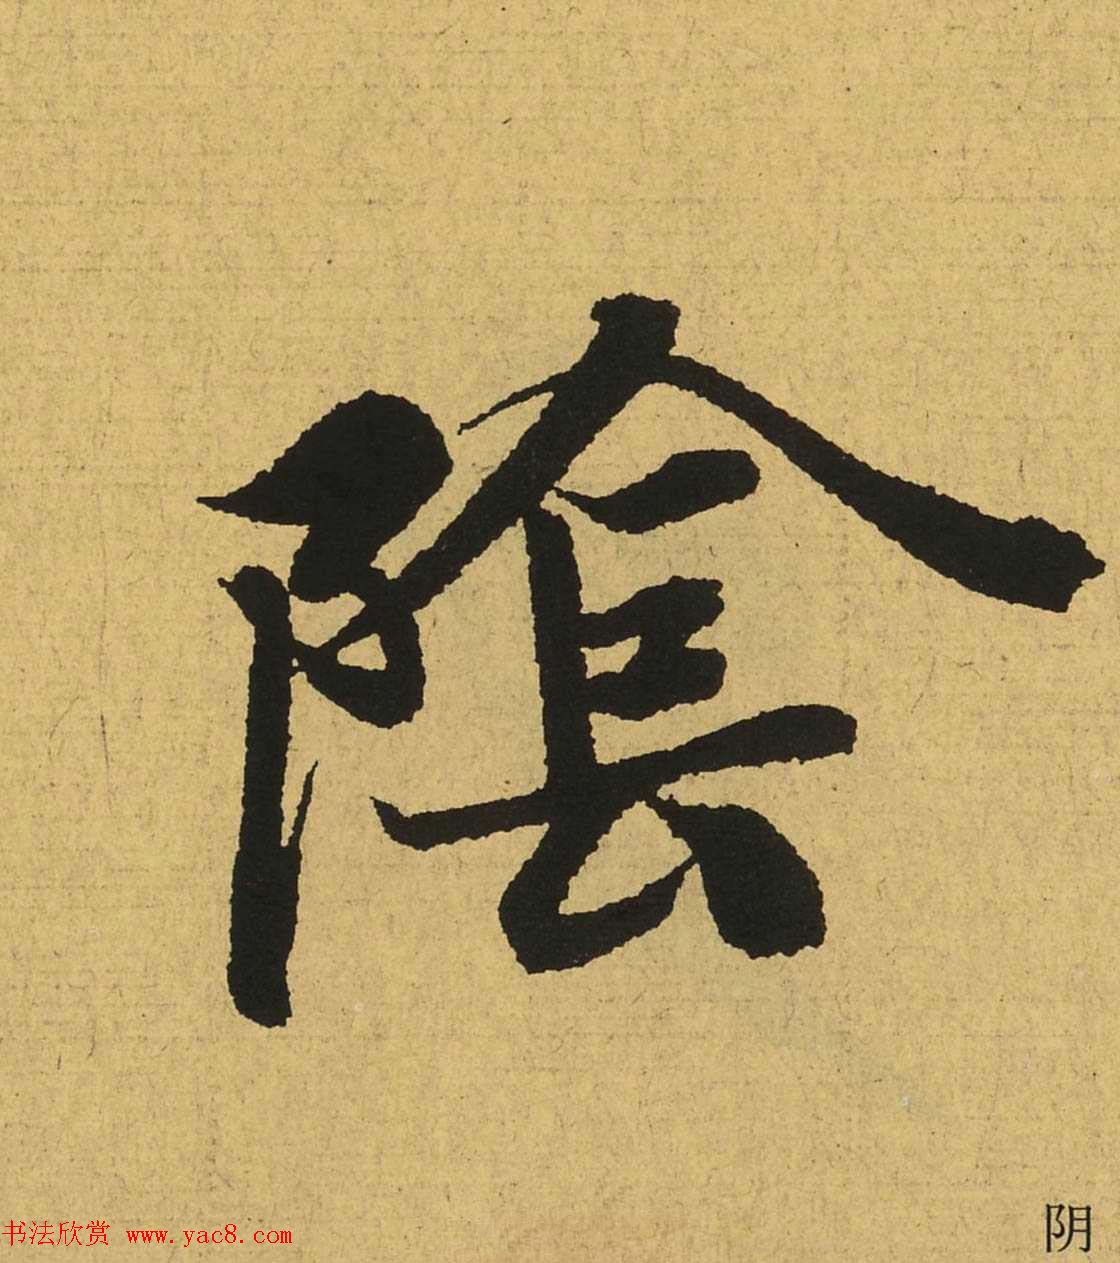 陰
书法欣赏 www.yac8.com
阴